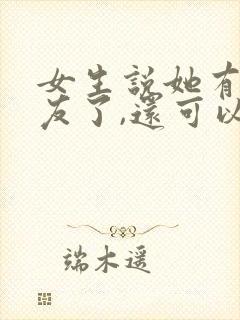 女生說她有
友了,還可以
端木遥